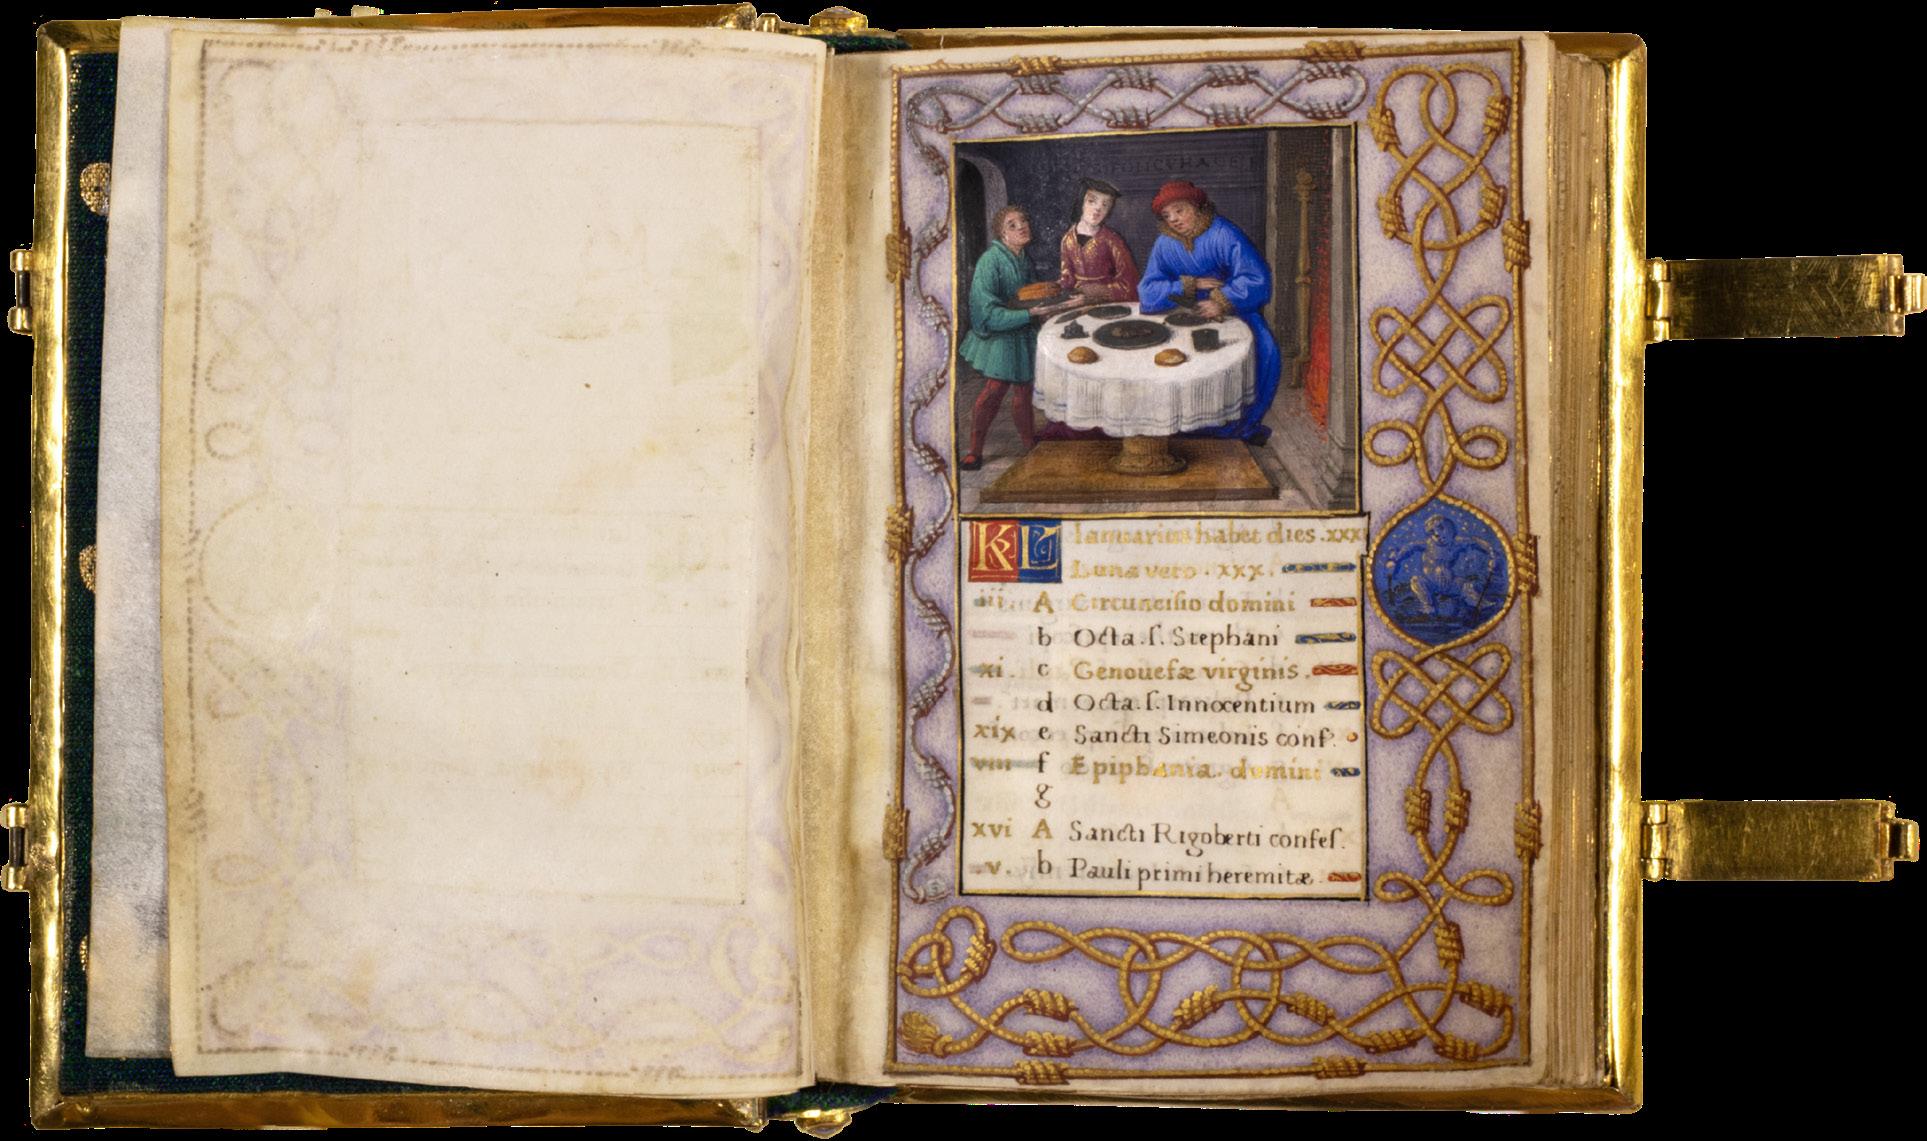 KL Ianuarius habet dies .xxxi
Luna vero . xxx .
iii A Circuncisio domini
b Octa . ſ . Stephani
xi . c Genouefæ virginis .
d Octa . ſ . Innocentium
xix e Sancti Simeonis conf .
viii f Epiphania . domini
g
xvi A Sancti Rigoberti confeſ .
. v . b Pauli primi heremitæ .